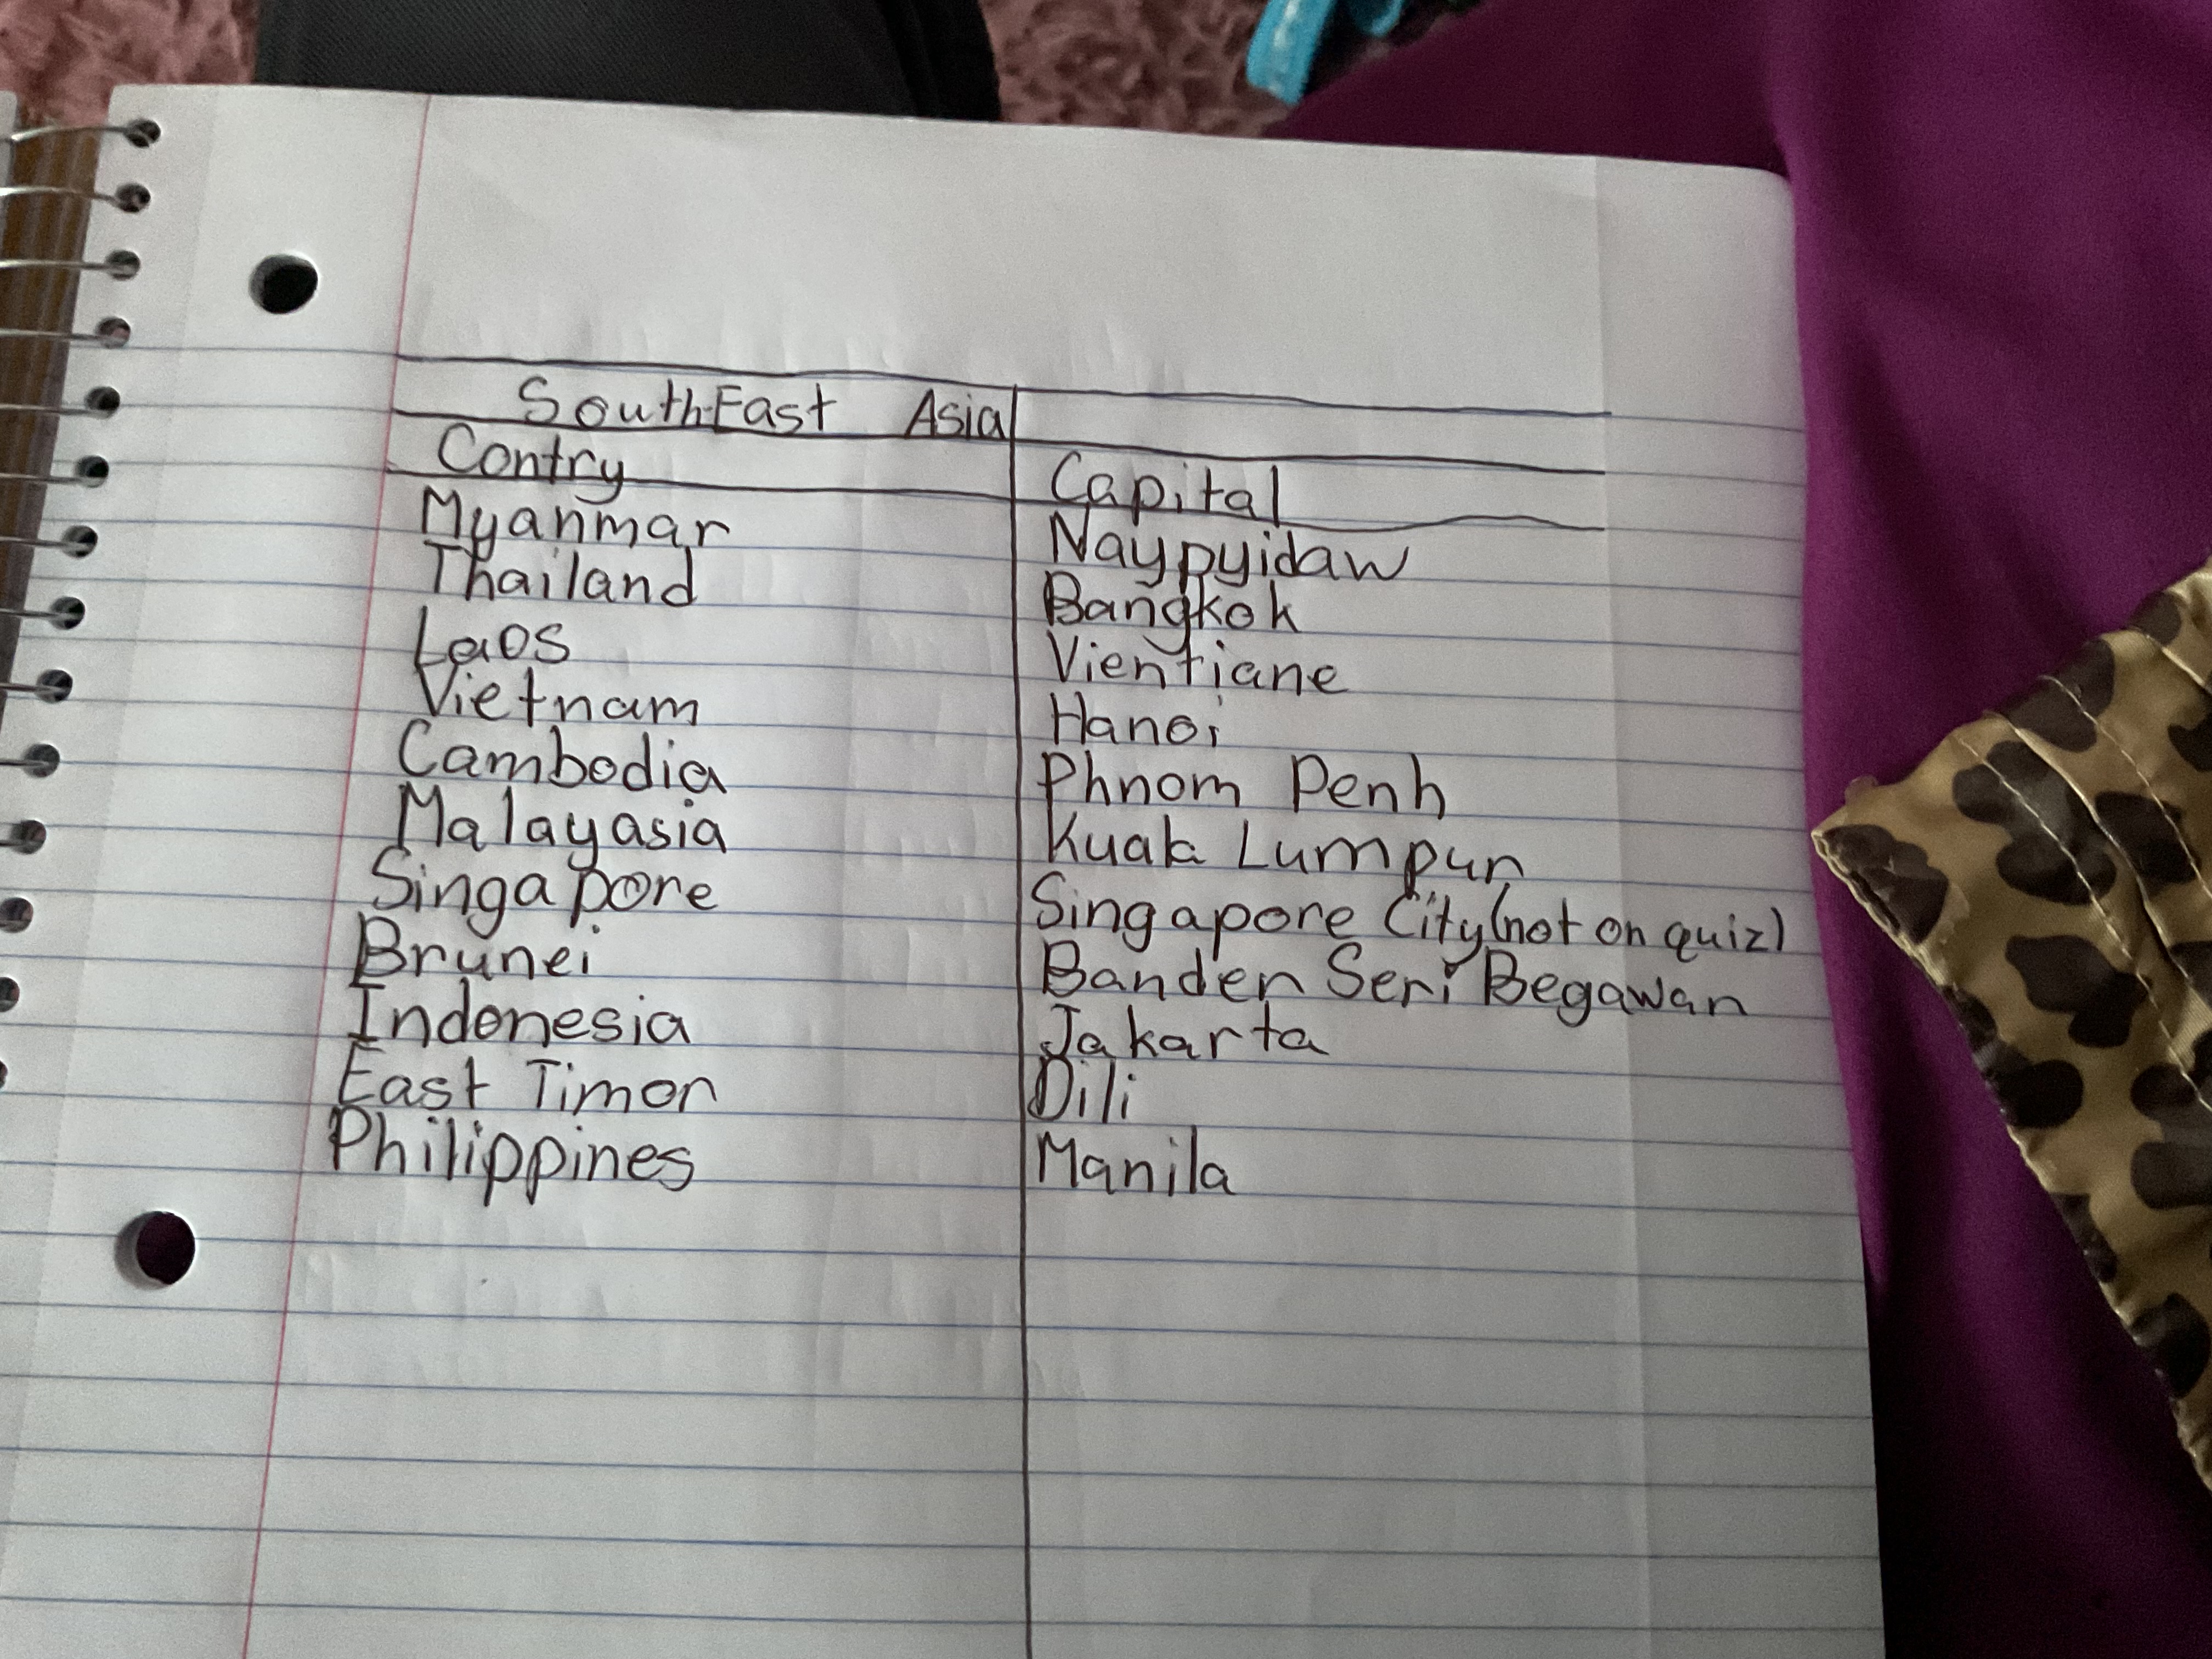 SouthEast Asia
Contry Capital
Myanmar Naypyidaw
Thailand Bangkok
Laos Vientiane
Vietnam Hanoi
Cambodia Phnom Penh
Malayasia Kuala Lumpur
Singapore Singapore City (not on quiz)
Brunei Bander Seri Begawan
Indonesia Jakarta
East Timor Dili
Philippines Manila